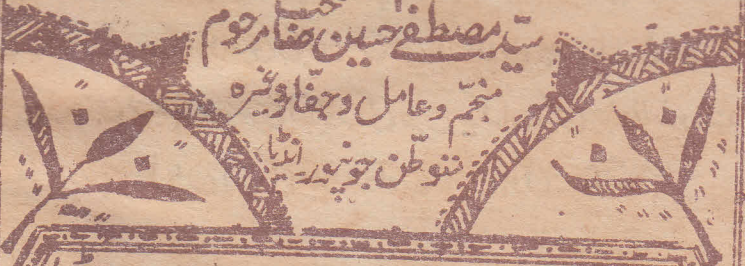 سیّد مصطفےٰ حسین صفا مرحوم
منجّم و عامل و جفّار وغیرہ
متوطّن جونپور انڈیا